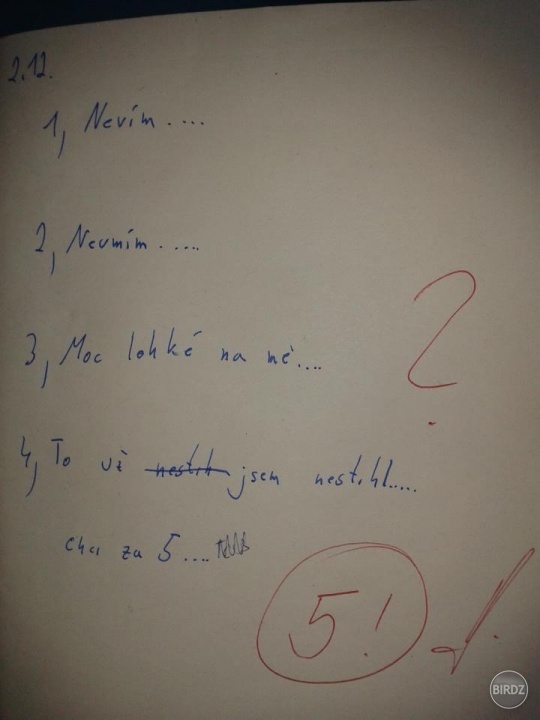 2.12.
1, Nevím....
2, Neumím.....
3, Moc lohké na mě....
?
4, To už nestih jsem nestihl.....
chci za 5....
5!
BIRDZ